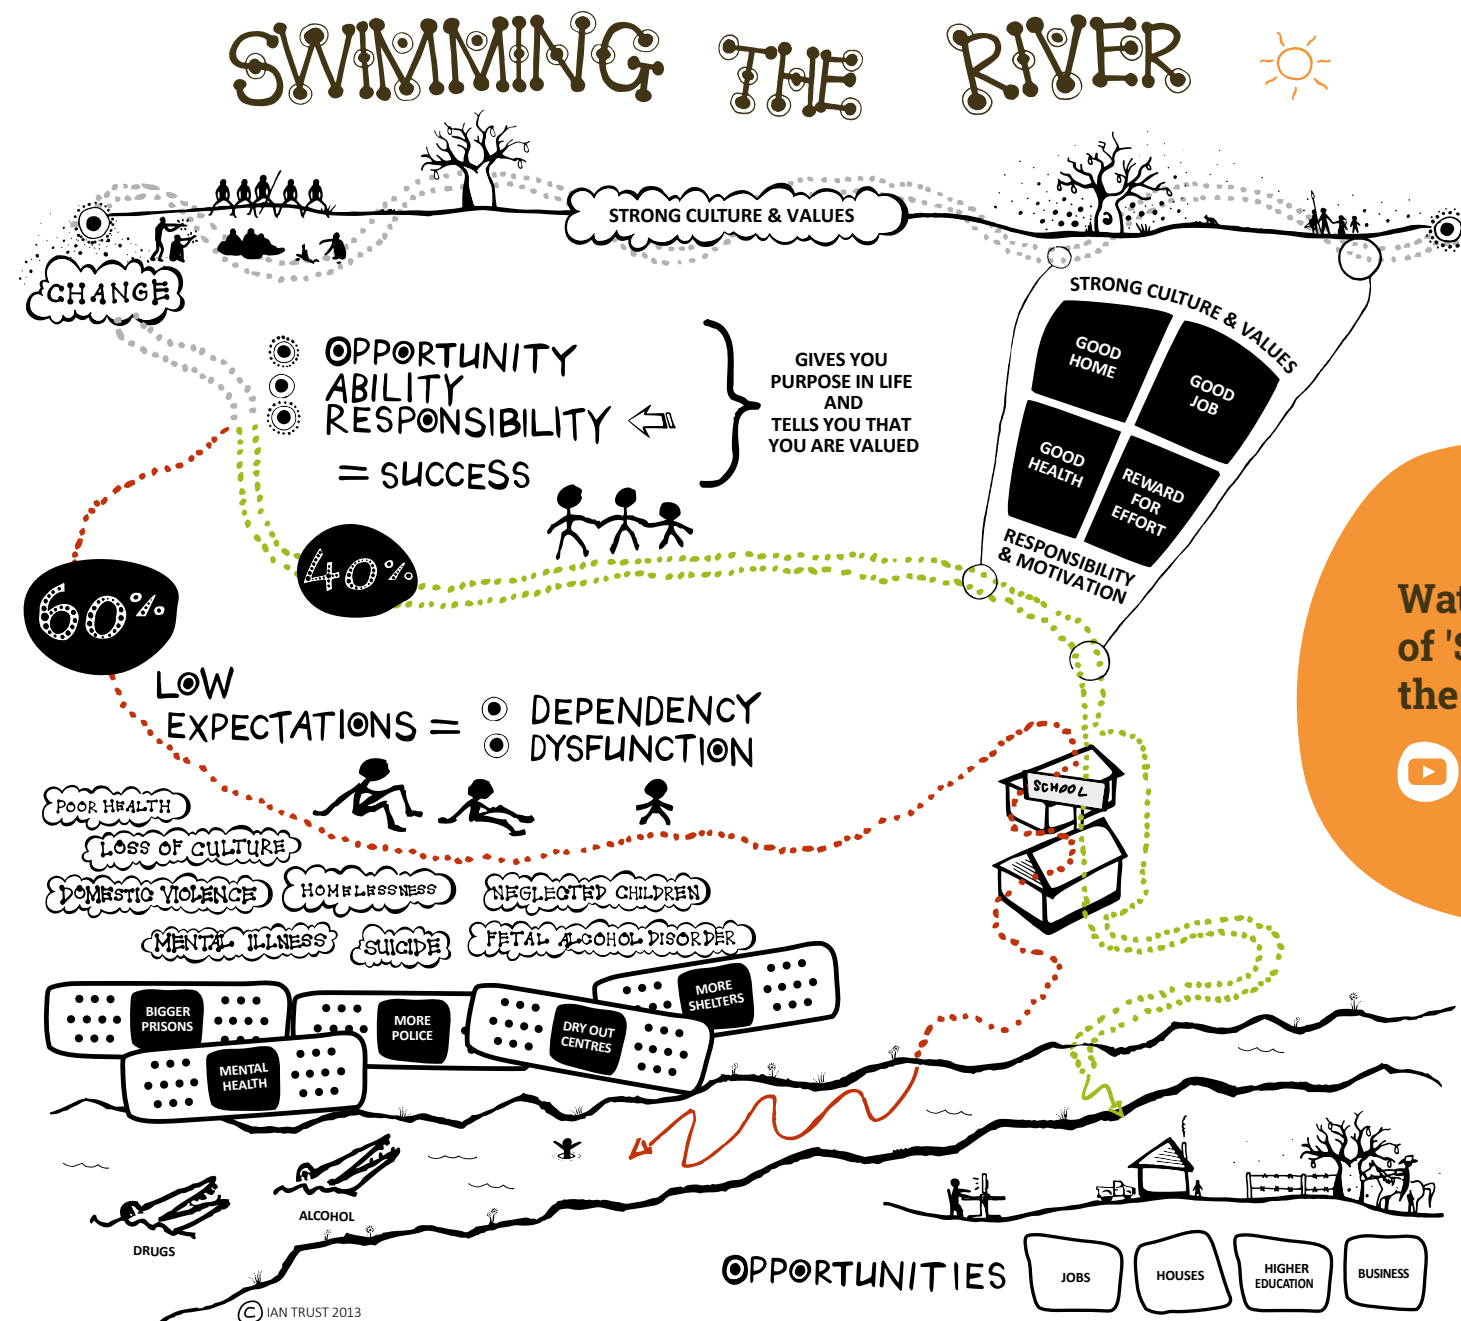 SWIMMING THE RIVER
STRONG CULTURE & VALUES
CHANGE
OPPORTUNITY
ABILITY
RESPONSIBILITY
= SUCCESS
GIVES YOU
PURPOSE IN LIFE
AND
TELLS YOU THAT
YOU ARE VALUED
STRONG CULTURE & VALUES
GOOD
HOME
GOOD
JOB
GOOD
HEALTH
REWARD
FOR
EFFORT
RESPONSIBILITY
& MOTIVATION
40%
60%
LOW
EXPECTATIONS =
DEPENDENCY
DYSFUNCTION
Wat
of 'S
the
SCHOOL
POOR HEALTH
LOSS OF CULTURE
DOMESTIC VIOLENCE
HOMELESSNESS
NEGLECTED CHILDREN
MENTAL ILLNESS
SUICIDE
FETAL ALCOHOL DISORDER
BIGGER
PRISONS
MORE
POLICE
DRY OUT
CENTRES
MORE
SHELTERS
MENTAL
HEALTH
ALCOHOL
DRUGS
OPPORTUNITIES
JOBS
HOUSES
HIGHER
EDUCATION
BUSINESS
© IAN TRUST 2013